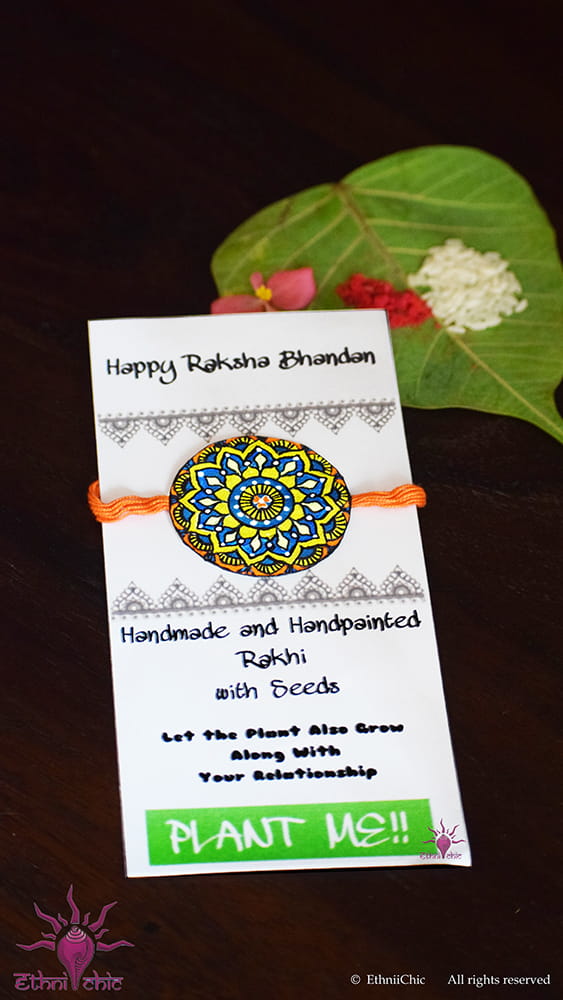 Happy Raksha Bhandan
Handmade and Handpainted
Rakhi
with Seeds
Let the Plant Also Grow
Along With
Your Relationship
PLANT ME!!
Ethniichic
Ethniichic
© EthniiChic All rights reserved